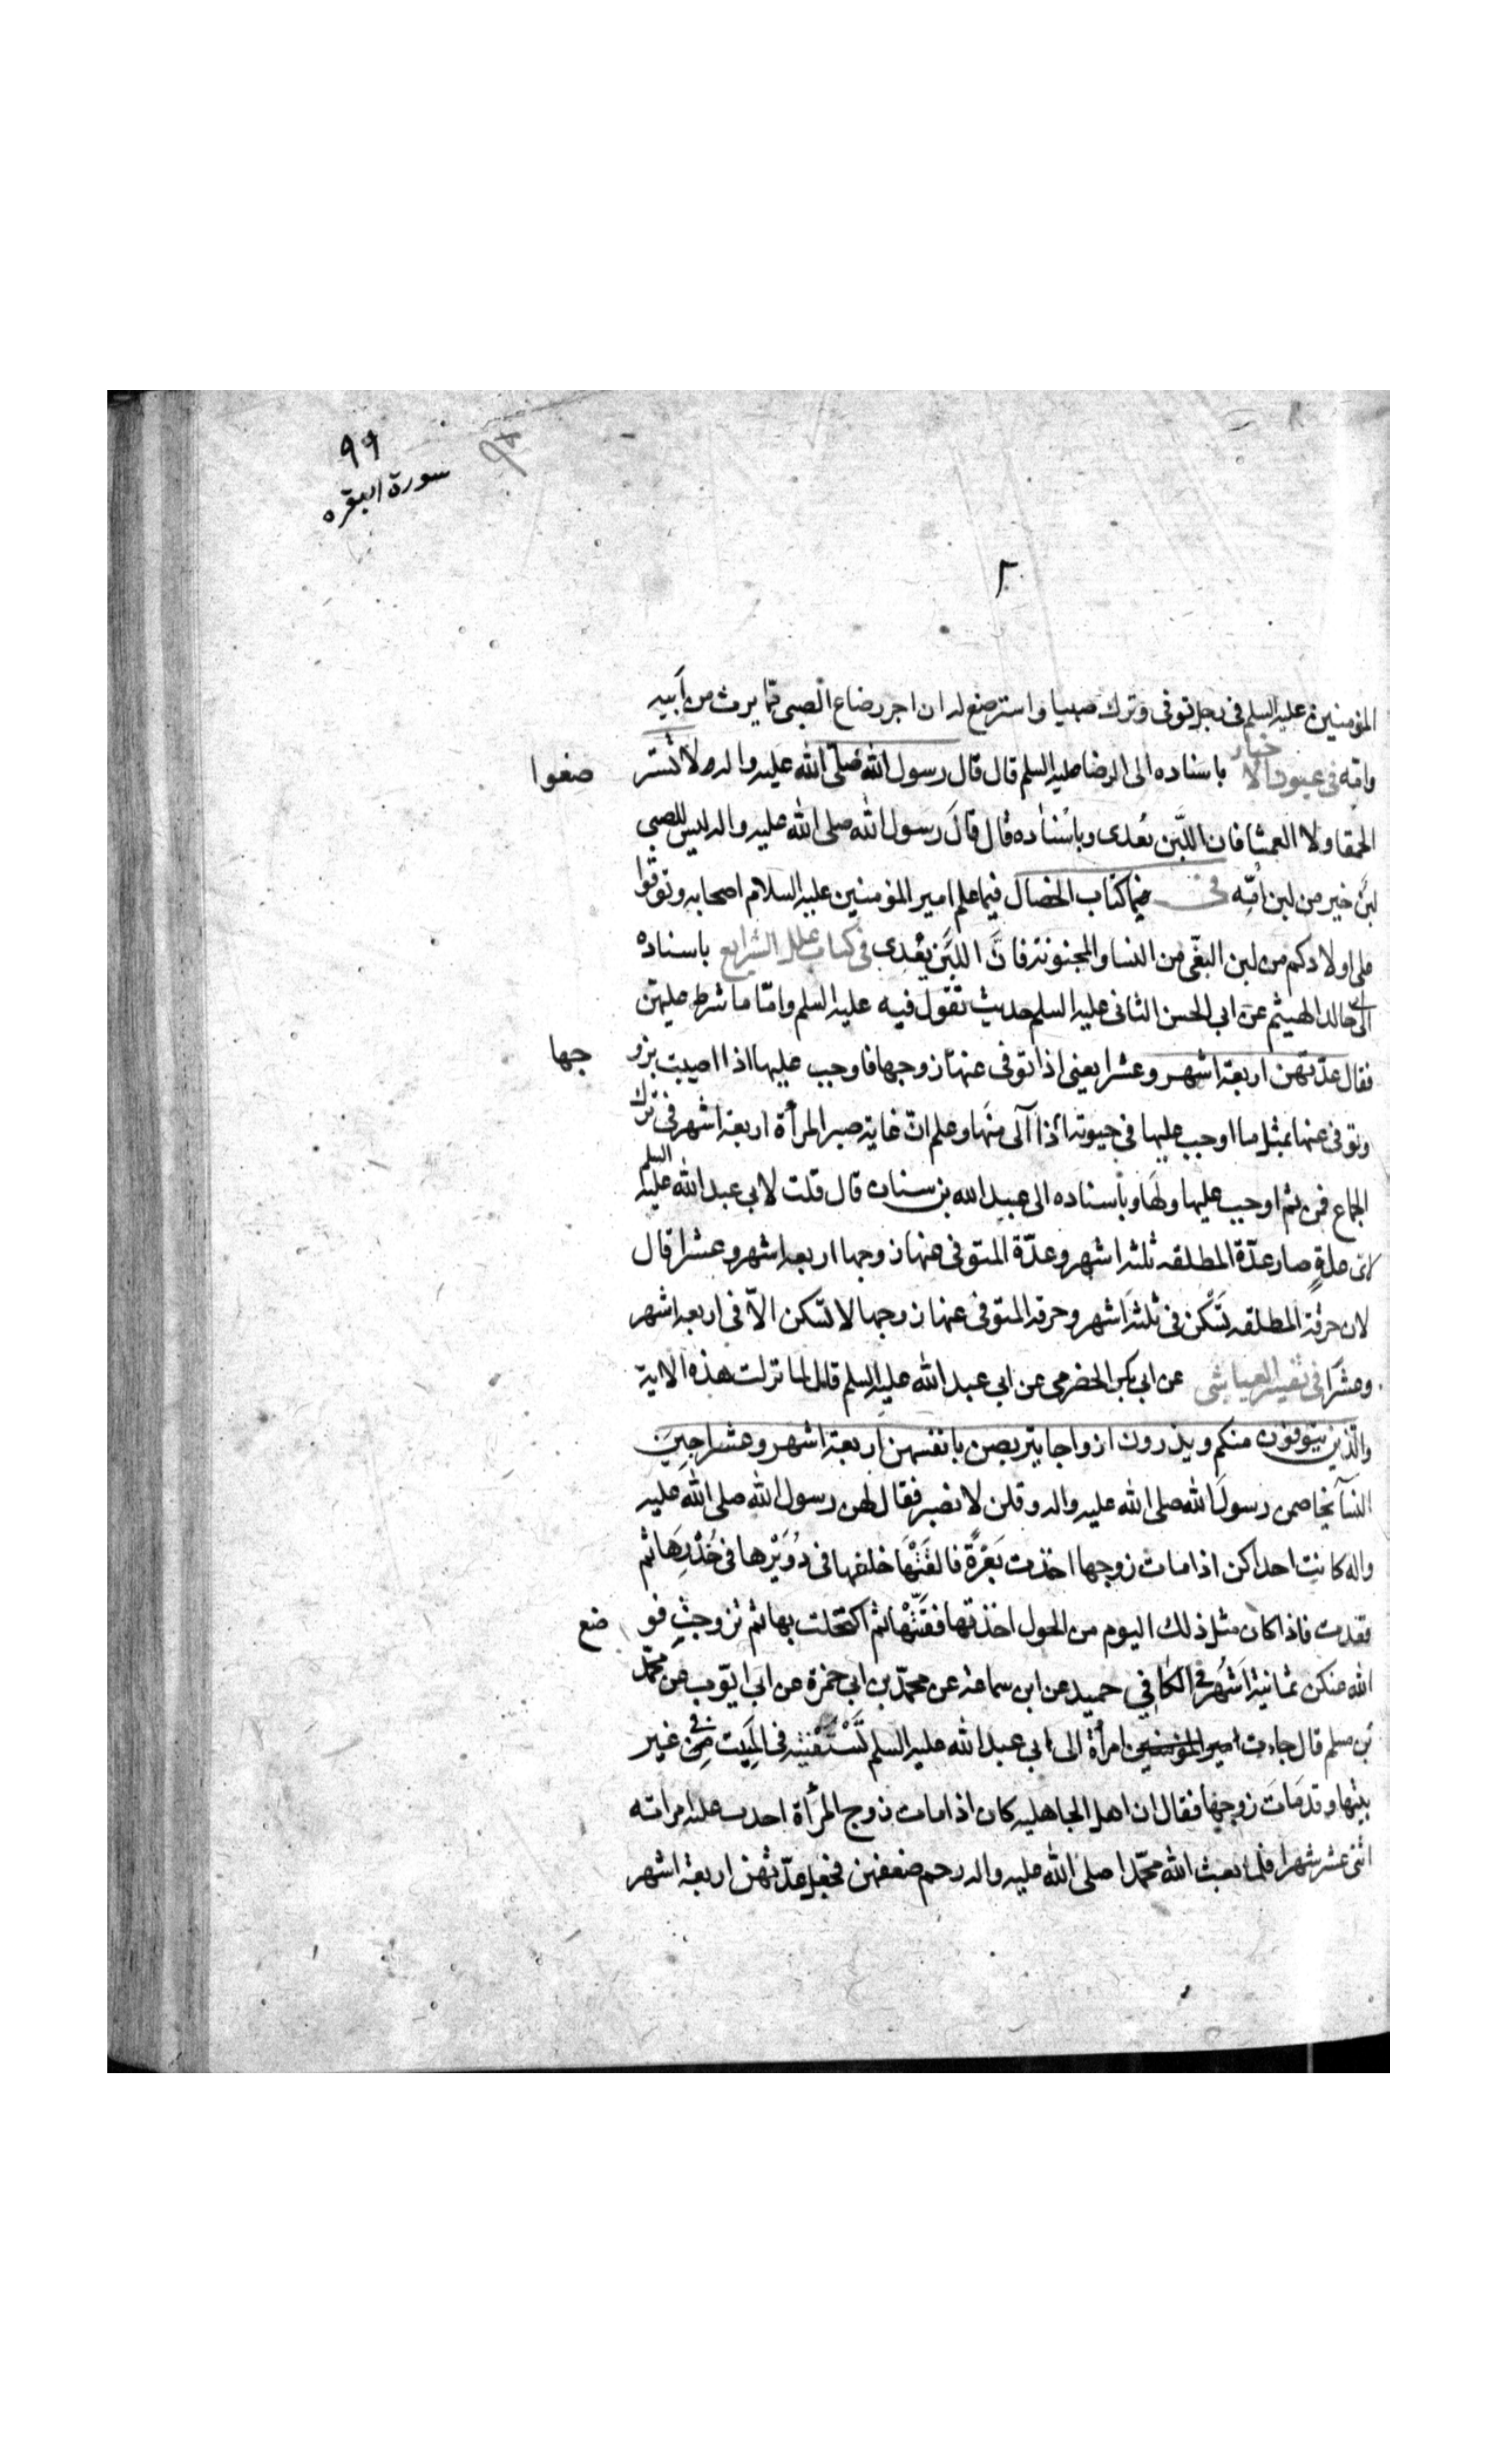 ٩٩
سورة البقره
المؤمنين عليه السلم فى رجل توفى وترك صبيا واسترضع له ان اجر رضاع الصبى مما يرث من ابيه
وامّه فى عيون الاخبار باسناده الى الرضا عليه السلم قال قال رسول الله صلّى الله عليه واله ولا تستر ضعوا
الحمقا ولا العمشا فان اللّبن يعدى وباسناده قال قال رسول الله صلى الله عليه واله ليس للصبى
لبن خير من لبن امّه فى كتاب الخصال فيما علم امير المؤمنين عليه السلام اصحابه وتوقوا
على اولادكم من لبن البغّى من النسا والمجنونة فانّ اللبن يعدى فى كتاب علل الشرايع باسناده
الى خالد الهيثم عن ابى الحسن الثانى عليه السلم حديث تقول فيه عليه السلم وامّا ما شرط عليهن
فقال عدّتهن اربعة اشهر وعشرا يعنى اذا توفى عنها زوجها فاوجب عليها اذا اصيبت بزو جها
وتوفى عنها بمثل ما اوجب عليها فى حيوته اذا آلى منها وعلم انّ غاية صبر المرأة اربعة اشهر فى ترك
الجماع فمن ثم اوجب عليها ولها وباسناده الى عبد الله بن سنان قال قلت لابى عبد الله عليه السلم
لاى علةٍ صار عدّة المطلقه ثلثة اشهر وعدّة المتوفى عنها زوجها اربعة اشهر وعشرا قال
لان حرقة المطلقه تسكن فى ثلثة اشهر وحرقة المتوفى عنها زوجها لا تسكن الاّ فى اربعة اشهر
وعشرا فى تفسير العياشى عن ابى بكر الحضرمى عن ابى عبد الله عليه السلم قال لما نزلت هذه الاية
والّذين يتوفون منكم ويذرون ازواجا يتربصن بانفسهن اربعة اشهر وعشرا جين
النسآ يخاصمن رسول الله صلى الله عليه واله وقلن لا نصبر فقال لهن رسول الله صلى الله عليه
واله كانت احداكن اذا مات زوجها اخذت بعرةً فالقتها خلفها فى دويرها فى خدرها ثم
قعدت فاذا كان مثل ذلك اليوم من الحول اخذتها ففتّتها ثم اكتحلت بها ثم تزوجت فو ضع
الله عنكن ثمانية اشهر فى الكافي حميد عن ابن سماعة عن محمّد بن ابى حمزة عن ابى ايّوب عن محمّد
بن مسلم قال جاءت امير المؤمنين امرأة الى ابى عبد الله عليه السلم تستفتيه فى المبيت فى غير
بيتها وقد مات زوجها فقال ان اهل الجاهليه كان اذا مات زوج المرأة احدت عليه امراته
اثنى عشر شهرا فلما بعث الله محمّدا صلى الله عليه واله رحم ضعفهن فجعل عدّتهن اربعة اشهر